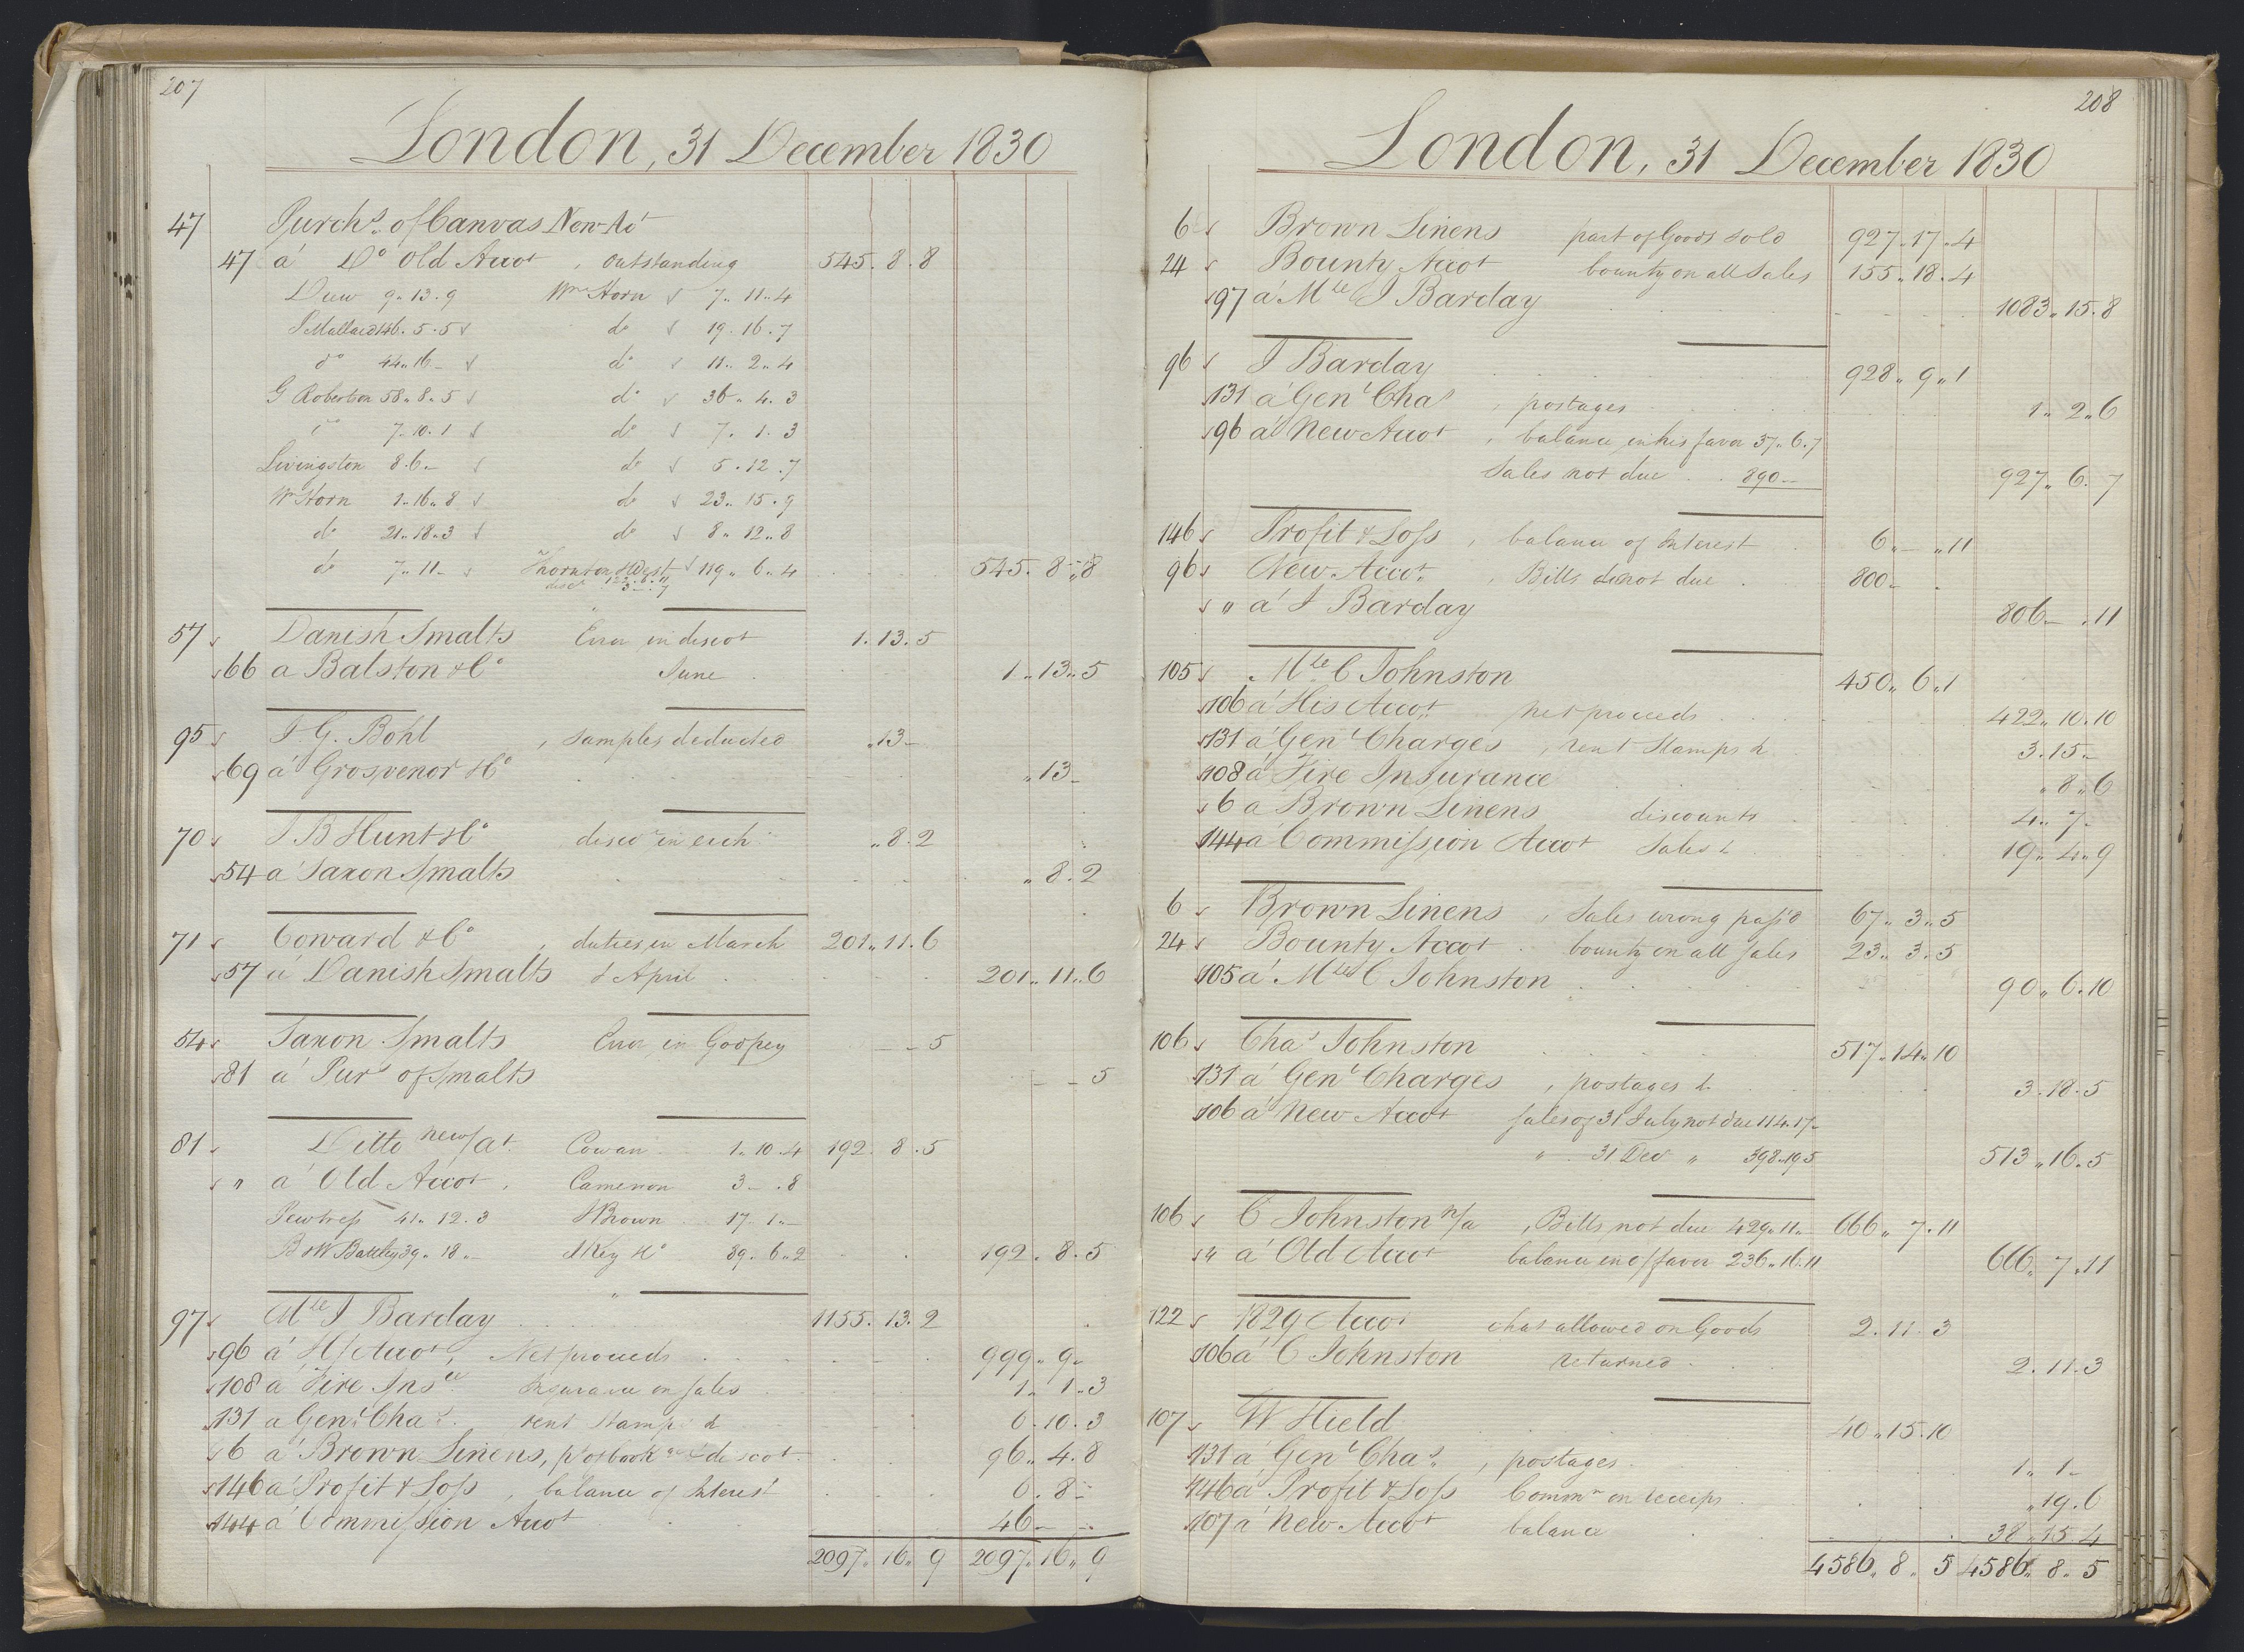 207
London, 31 December 1830
47 Purchs. of Canvas New Act
47 á Do Old Accot, outstanding 545. 8. 8
Duw 9. 13. 9 Wm Horn 7. 11. 4
S Mullard 146. 5. 5 do 19. 16. 7
do 44. 16 - do 11. 2. 4
G Robertson 58. 8. 5 do 36. 4. 3
do 7. 10. 1 do 7. 1. 3
Livingston 8. 6. - do 5. 12. 7
Wm Horn 1. 16. 8 do 23. 15. 9
do 21. 18. 3 do 8. 12. 8
do 7. 11 - Thornton & West 119. 6. 4 545. 8. 8
disct 3. - . 7
57 Danish Smalts Error in discot 1. 13. 5
66 a Balston & Co June 1. 13. 5
95 I G. Bohl, samples deducted " 13 -
69 á Grosvenor & Co " 13 -
70 I B Hunt & Co disco in exch " 8. 2
54 a Saxon Smalts " 8. 2
71 Coward & Co, duties in March 201. 11. 6
57 á Danish Smalts & April 201. 11. 6
54 Saxon Smalts Error in Gospey - - 5
81 á Purs of Smalts - - 5
81 Ditto new/at. Cowan 1. 10. 4 192. 8. 5
" á Old Accot. Cameron 3 - . 8
Pewtress 41. 12. 3 Brown 17. 1. -
B & W Balley 39. 18. - Key & Co 89. 6. 2 192. 8. 5
97 Mle I Barclay 1155. 13. 2
96 á H/Accot, Net proceeds 999. 9 -
108 a Fire Insce Insurance on sales 1. 1. 3
131 a Genl Chas. rent stamps & 0. 10. 3
6 a Brown Linens, & discot 96. 4. 8
146 a Profit & Loss, balance of Interest 0. 8 -
144 a Commission Accot 46 - -
2097. 16. 9 2097. 16. 9
208
London, 31 December 1830
6 Brown Linens part of Goods sold 927. 17. 4
24 Bounty Accot bounty on all Sales 155. 18. 4
97 á Mle I Barclay 1083. 15. 8
96 I Barclay 928. 9. 1
131 á Genl Chas, postages 1. 2. 6
96 á New Accot, balance in his favor 37. 6. 7
Sales not due 890 - 927. 6. 7
146 Profit & Loss, balance of Interest 6. - . 11
96 New Accot, Bills not due 800 -
" á I Barclay 806 - . 11
105 Mle C Johnston 450. 6. 1
106 á His Accot net proceeds 422. 10. 10
131 á Genl Charges, rent Stamps & 3. 15 -
108 a Fire Insurance " 8. 6
6 a Brown Linens discounts 4. 7 -
144 a Commission Accot Sales & 19. 4. 9
6 Brown Linens, Sales wrong pass'd 67. 3. 5
24 Bounty Accot bounty on all sales 23. 3. 5
105 á Mle C Johnston 90. 6. 10
106 Chas Johnston 517. 14. 10
131 á Genl Charges, postages & 3. 18. 5
106 á New Accot Sales of 31 July not due 114. 17 -
" 31 Dec " 398. 19. 5 513. 16. 5
106 C Johnston n/a, Bills not due 429. 11. - 666. 7. 11
" á Old Accot balance in o/favor 236. 16. 11 666. 7. 11
122 1829 Accot chas allowed on Goods 2. 11. 3
106 á C Johnston returned 2. 11. 3
107 W Hield 40. 15. 10
131 á Genl Chas., postages 1. 1 -
146 á Profit & Loss Commn on receips " 19. 6
107 á New Accot balance 38. 15. 4
4586. 8. 5 4586. 8. 5